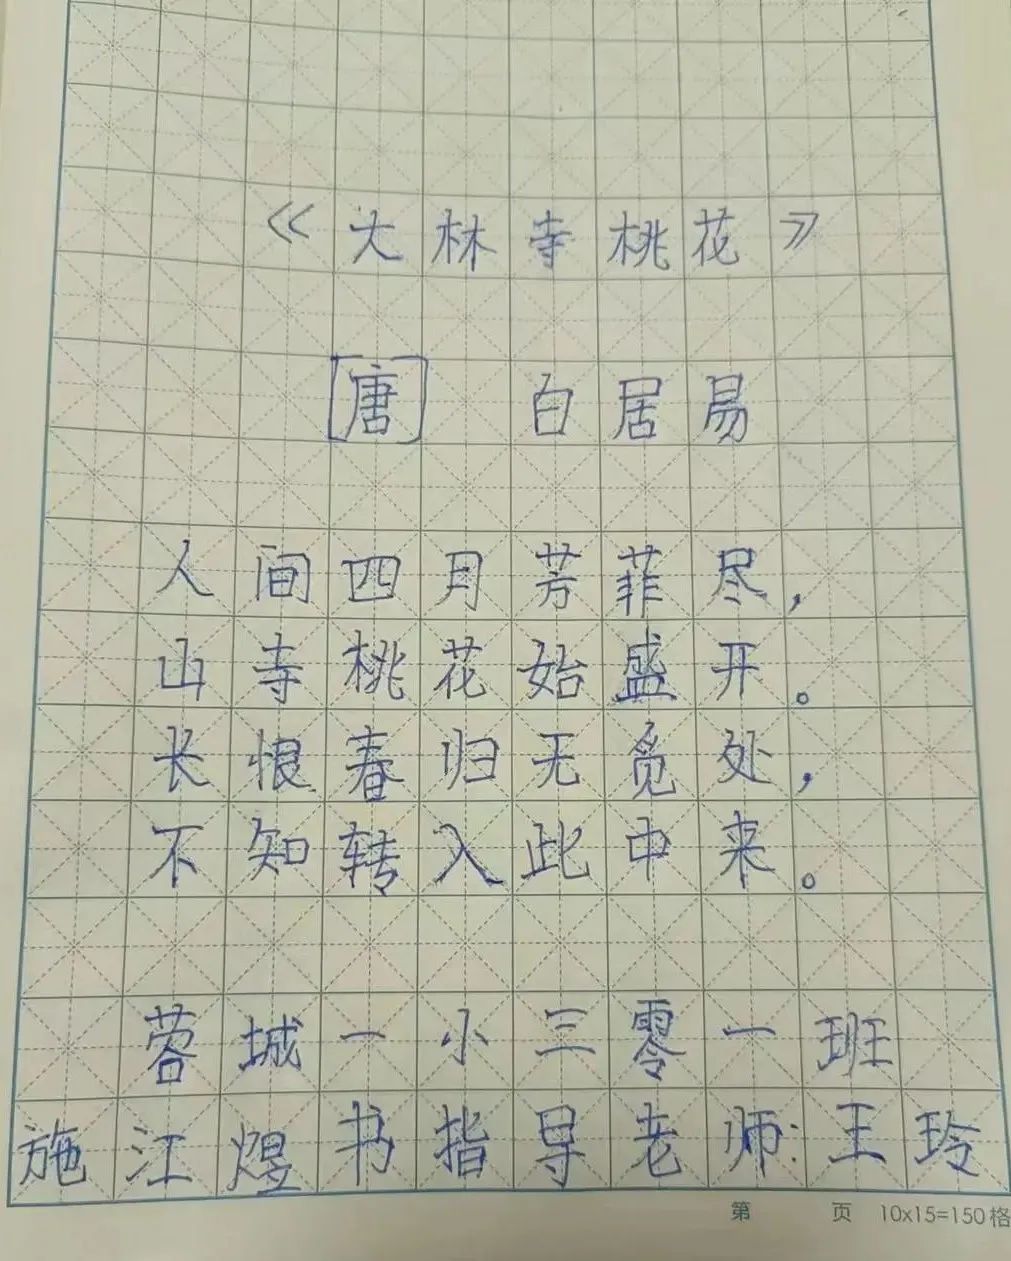 《大林寺桃花》
[唐] 白居易
人间四月芳菲尽，
山寺桃花始盛开。
长恨春归无觅处，
不知转入此中来。
蓉城一小三零一班
施江煜书指导老师:王玲
第 页 10x15=150格